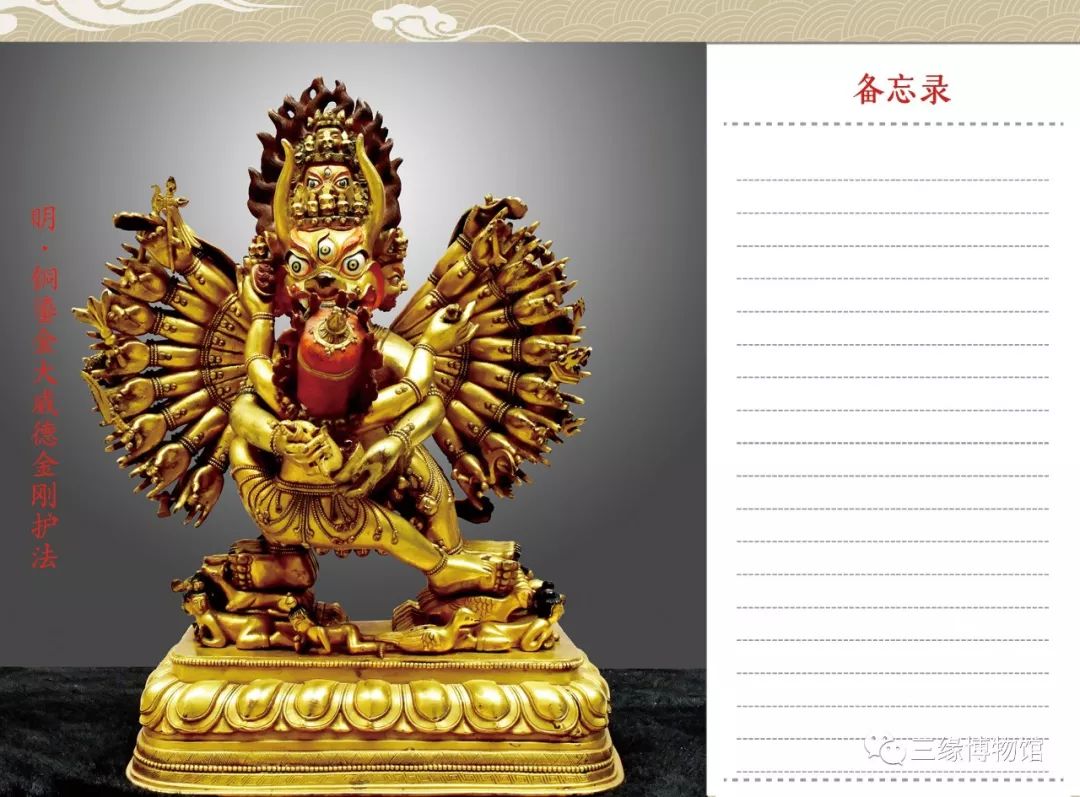 备忘录
明·铜鎏金大威德金刚护法
三缘博物馆